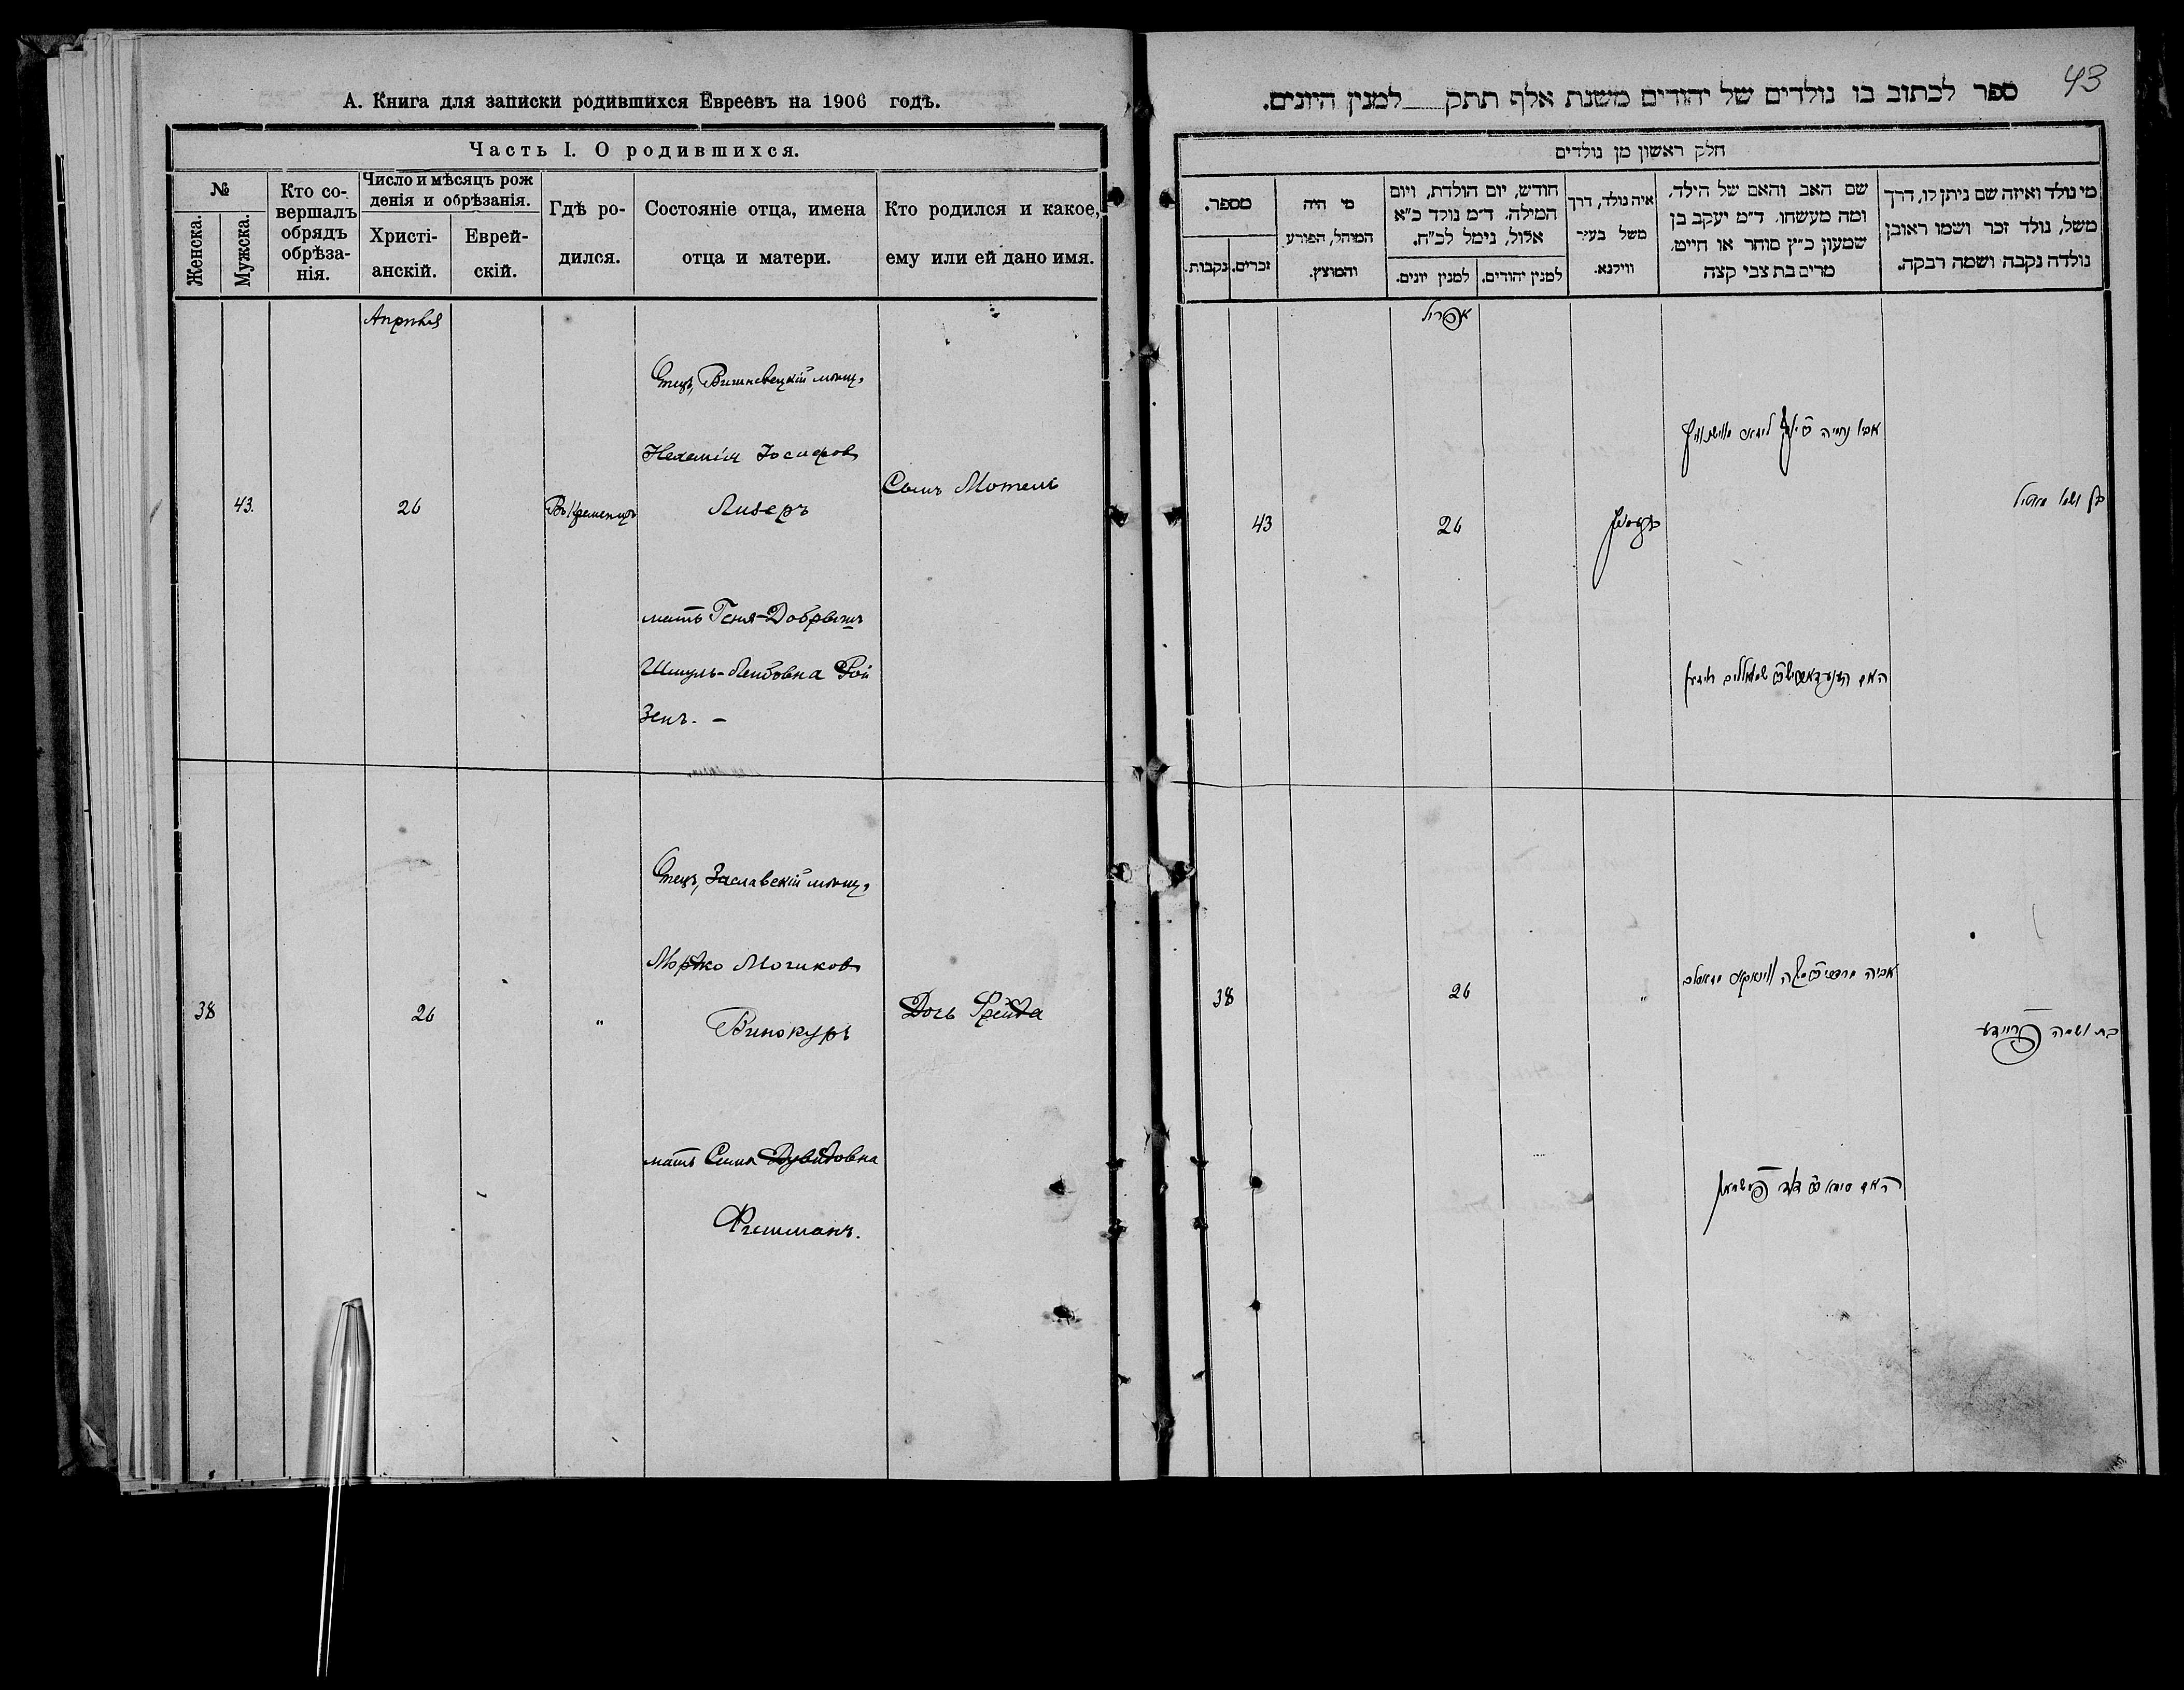 А. Книга для записки родившихся Евреевъ на 1906 годъ.
Часть I. О родившихся.
№
Женска.
Мужска.
Кто со-
вершалъ
обрядъ
обрѣза-
нія.
Число и мѣсяцъ рож
денія и обрѣзанія.
Христі-
анскій.
Еврей-
скій.
Гдѣ ро-
дился.
Состояніе отца, имена
отца и матери.
Кто родился и какое,
ему или ей дано имя.
Апрѣля
43.
26
Въ Кременцѣ
Отецъ, Вишневецкій мѣщ.
Нехемія Іосифов
Лизеръ
мать Геня-Добрышъ
Шмуль-Лейбовна Рой
зенъ. -
Сынъ Мотель
38
26
"
Отецъ, Заславскій мѣщ.
Мордко
Винокуръ
мать Сима Дувидовна
Фишманъ.
Дочь Фрейда
43
ספר לכתוב בו נולדים של יהודים משנת אלף תתק למנין היונים.
חלק ראשון מן נולדים
מי נולד ואיזה שם ניתן לו, דרך
משל, נולד זכר ושמו ראובן
נולדה נקבה ושמה רבקה.
שם האב והאם של הילד,
ומה מעשהו, ד״מ יעקב בן
שמעון כ״ץ סוחר או חייט,
מרים בת צבי קצה
איה נולד, דרך
משל בעיר
ווילנא.
חודש, יום הולדת, ויום
המילה, ד״מ נולד כ״א
אלול, נימל לכ״ח.
למנין יהודים.
למנין יונים.
מי היה
המוהל, הפורע
והמוצץ.
מספר.
זכרים.
נקבות.
אפריל
אביו נחמיה
בן ושמו מוטיל
26
43
אביה
בת ושמה פריידע
"
26
38
האם סימא דוד פישמאן